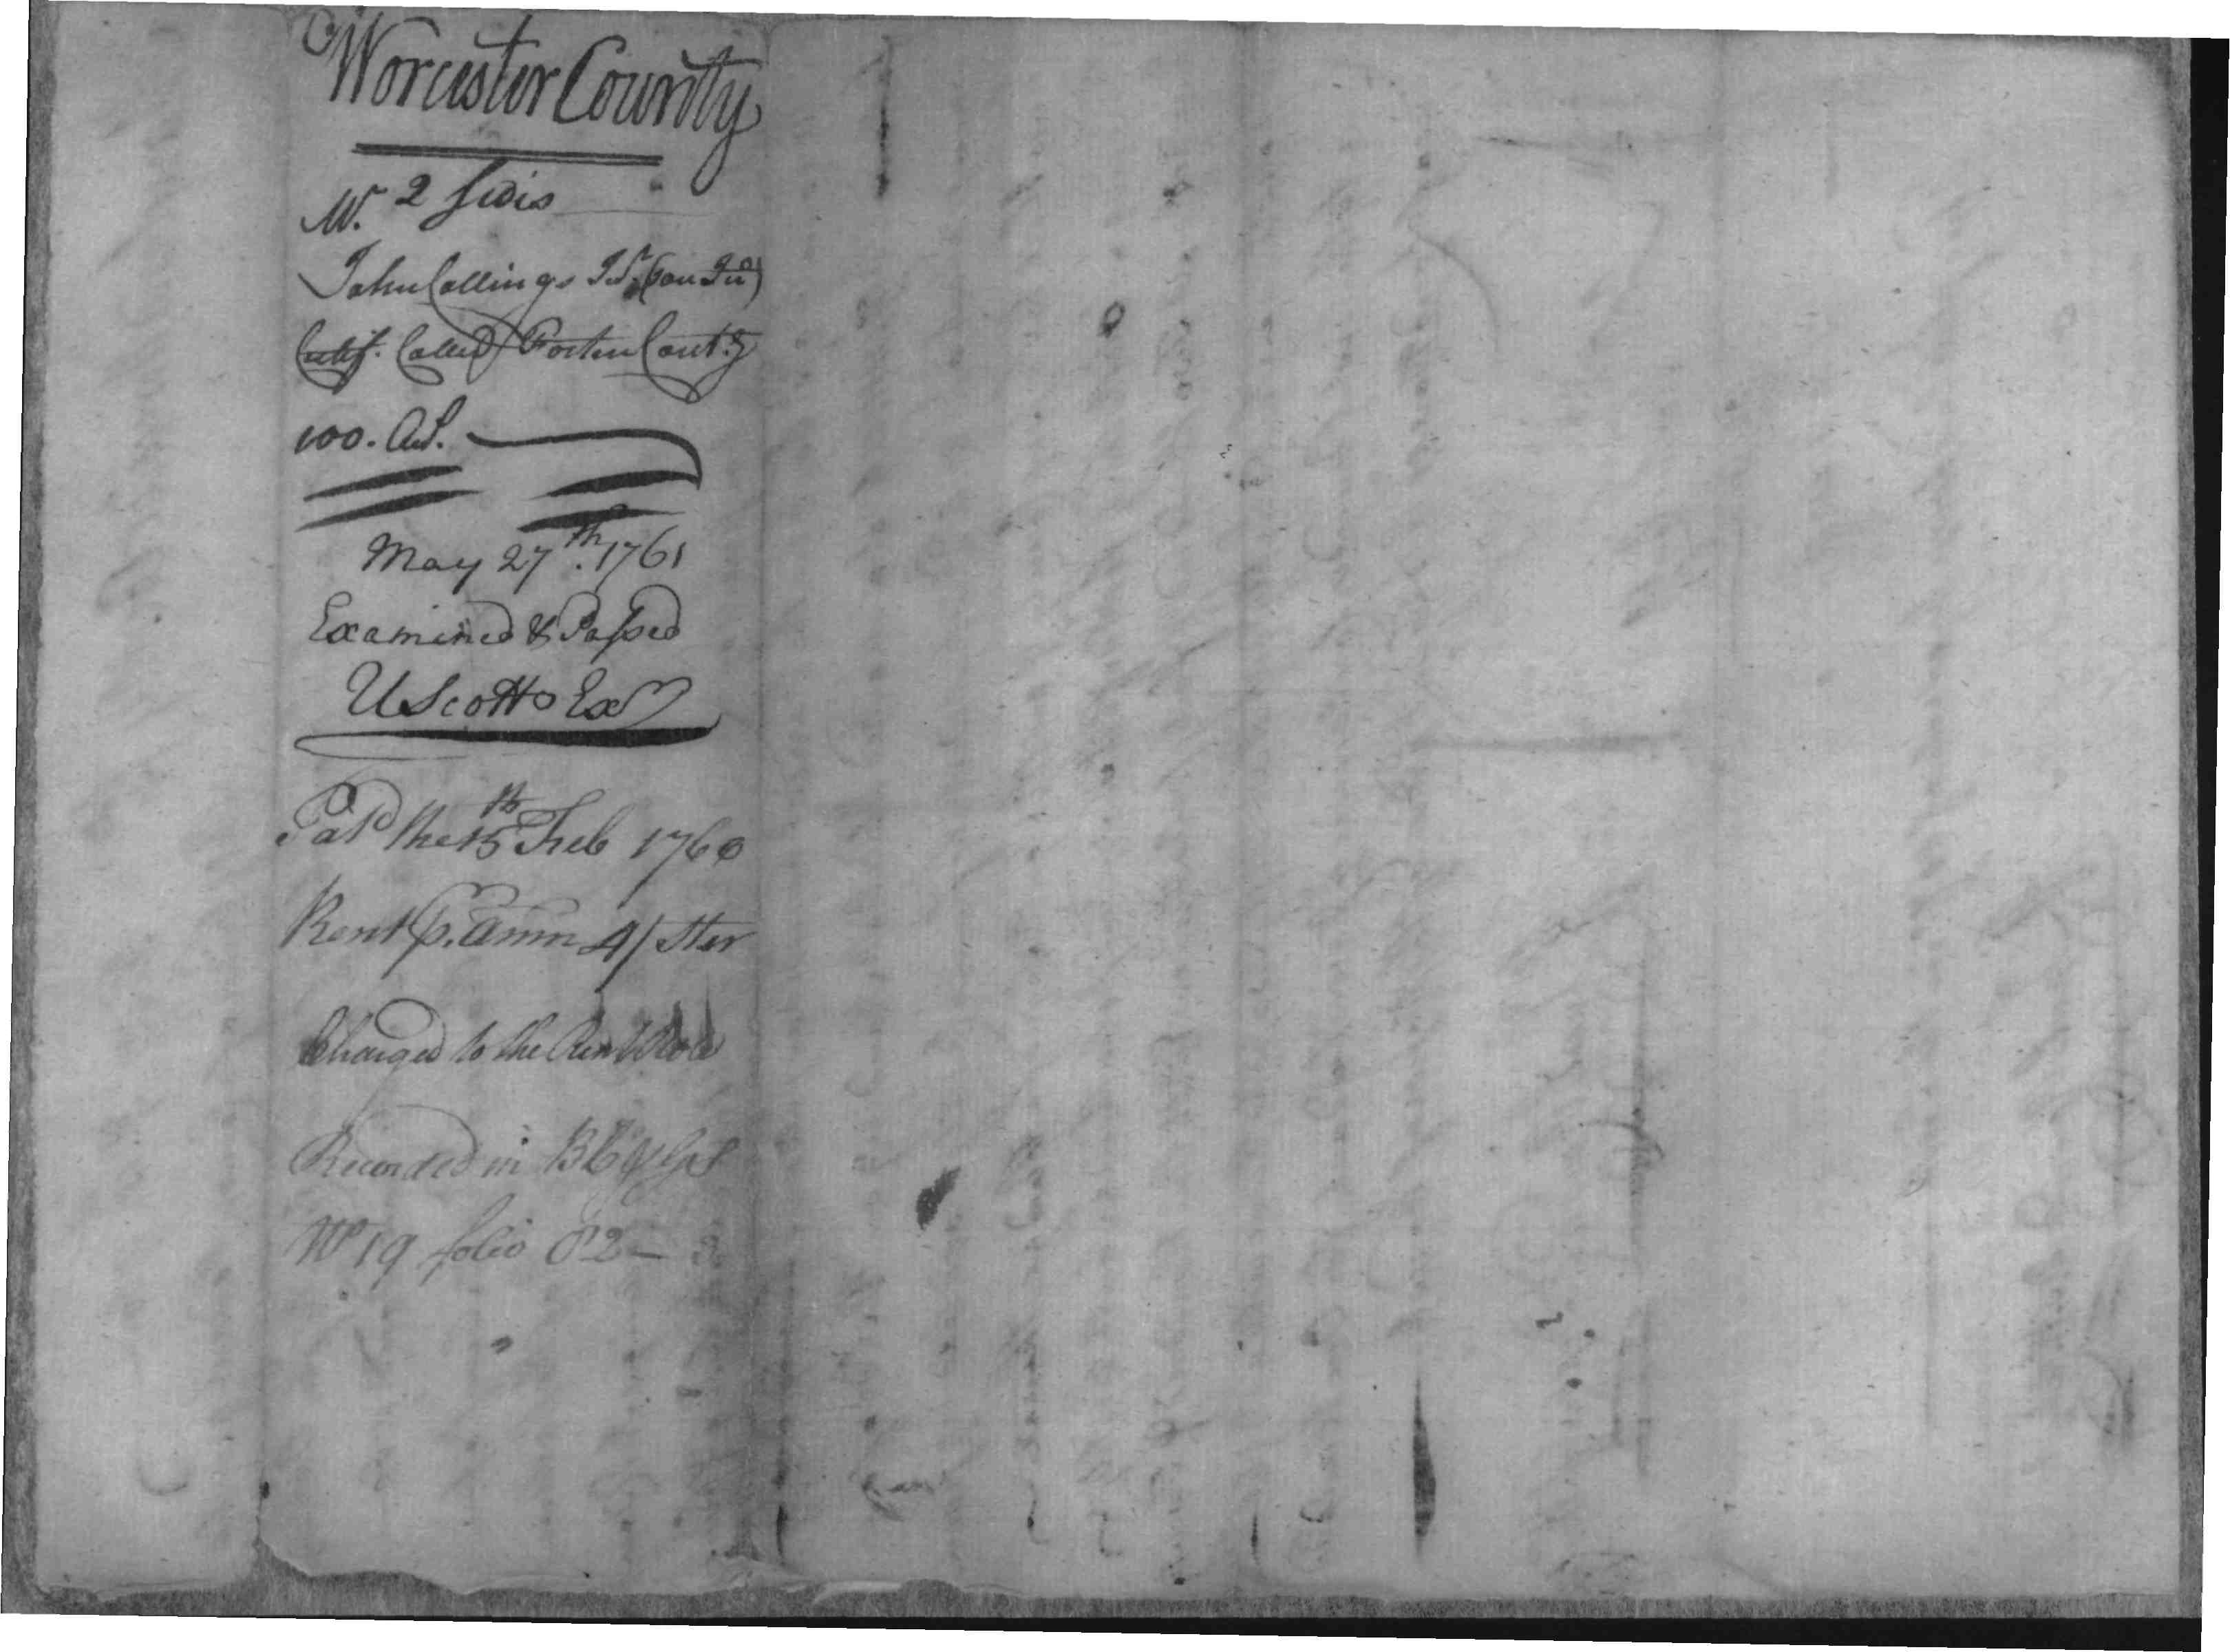 Worcester County
W. 2 sides
John Collings
Certif. Called
100. Acs.
May 27th. 1761
Examined & Passed
U Scott Exr
Patd the 15th Feb 1760
Rent p. Ann 4/ Ster
Charged to the Rent Roll
Recorded in B C & G S
No 19 folio 82